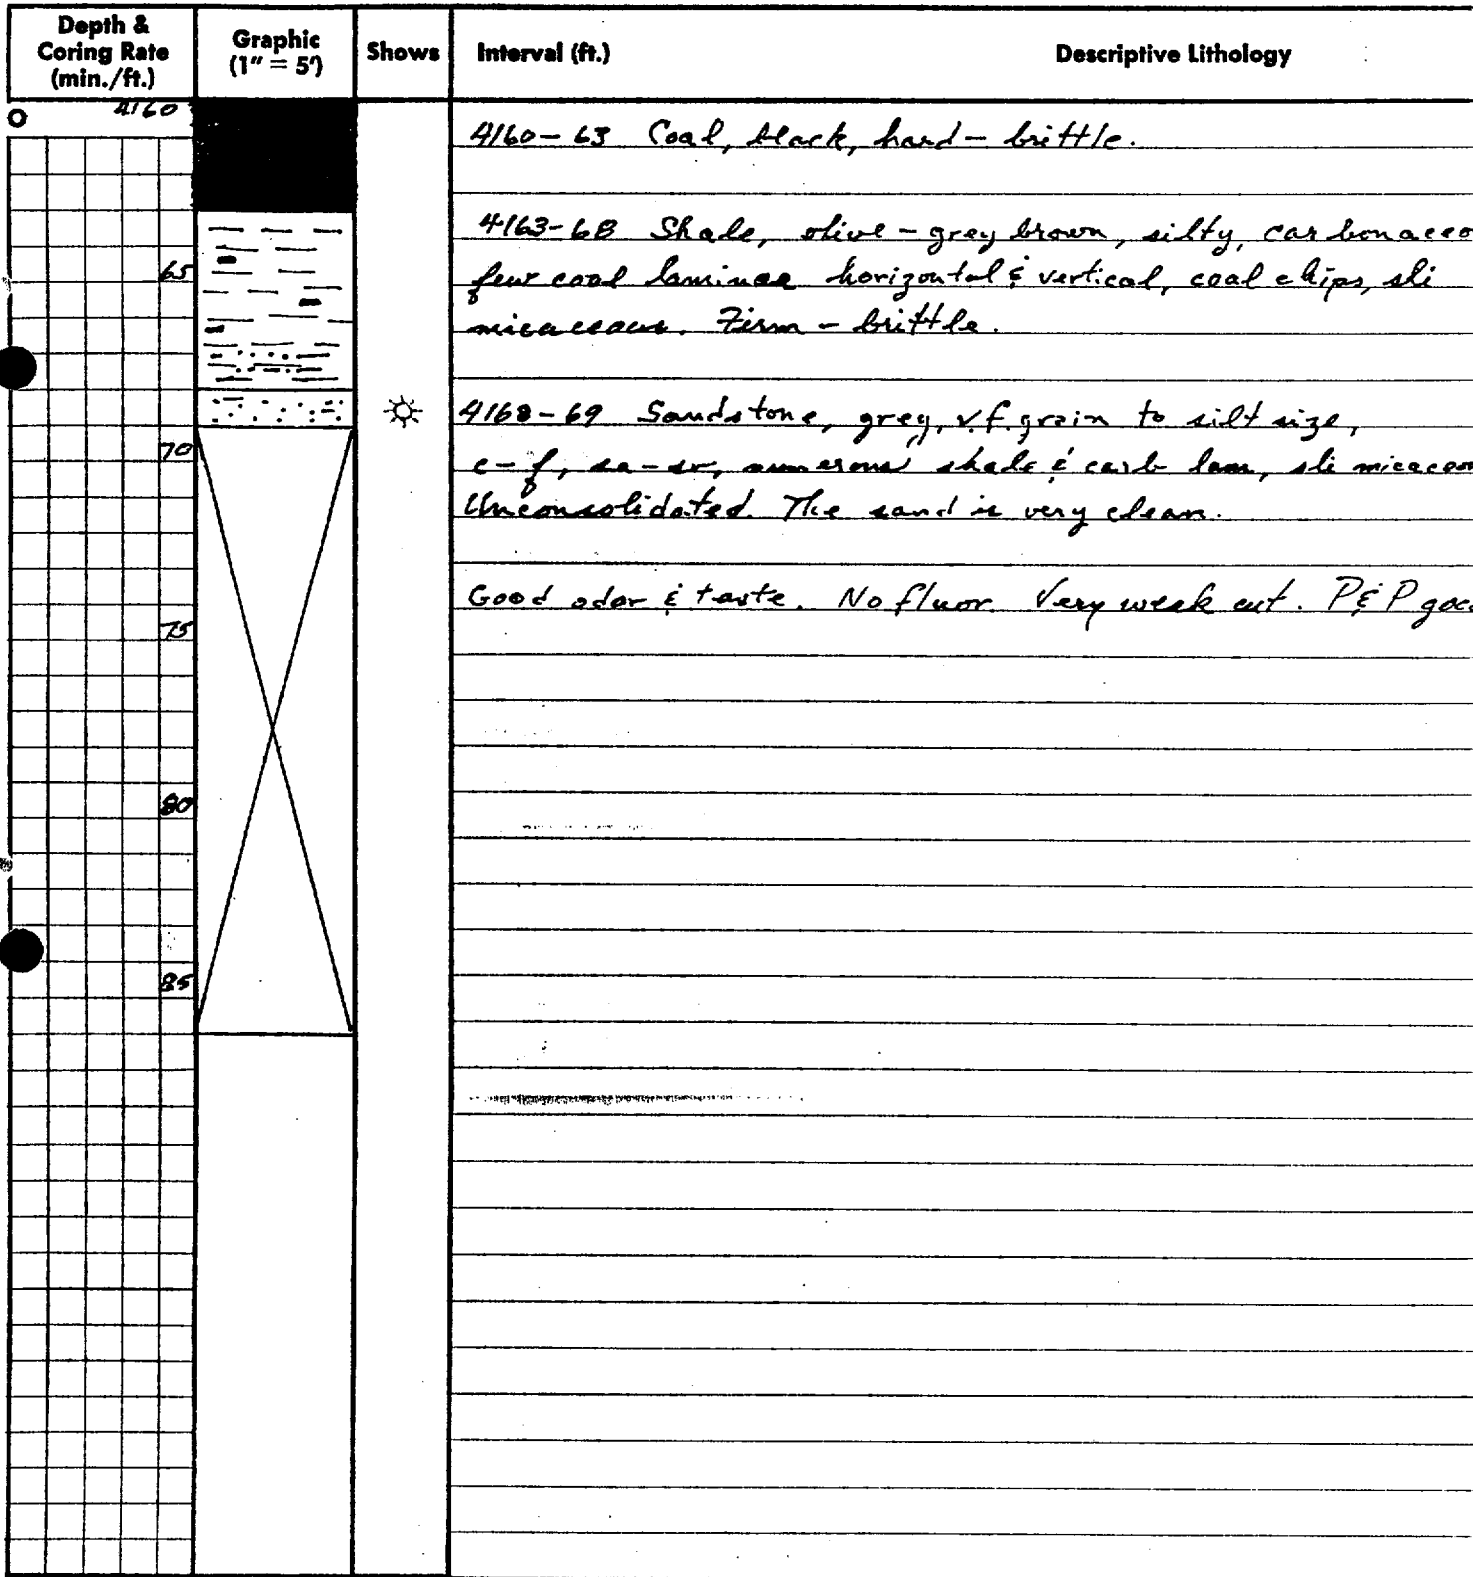 Depth & Coring Rate (min./ft.)
Graphic (1" = 5')
Shows
Interval (ft.)
Descriptive Lithology
0
4160
4160-63 Coal, black, hard - brittle.
4163-68 Shale, olive - grey brown, silty, carbonaceo
65
few coal laminae horizontal & vertical, coal chips, sli
micaceous. Firm - brittle.
4168-69 Sandstone, grey, v.f. grain to silt size,
70
c-f, sa-sr, numerous shale & carb lam, sli micaceou
Unconsolidated. The sand is very clean.
Good odor & taste. No fluor. Very weak cut. P & P good
75
80
85